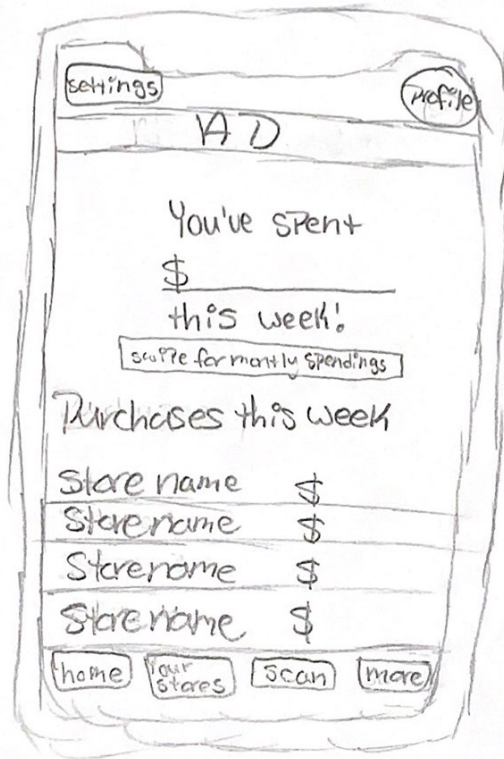 settings
Profile
AD
You've spent
$
this week!
swipe for montly spendings
Purchases this week
Store name $
Store name $
Store name $
Store name $
home
Your
stores
scan
more